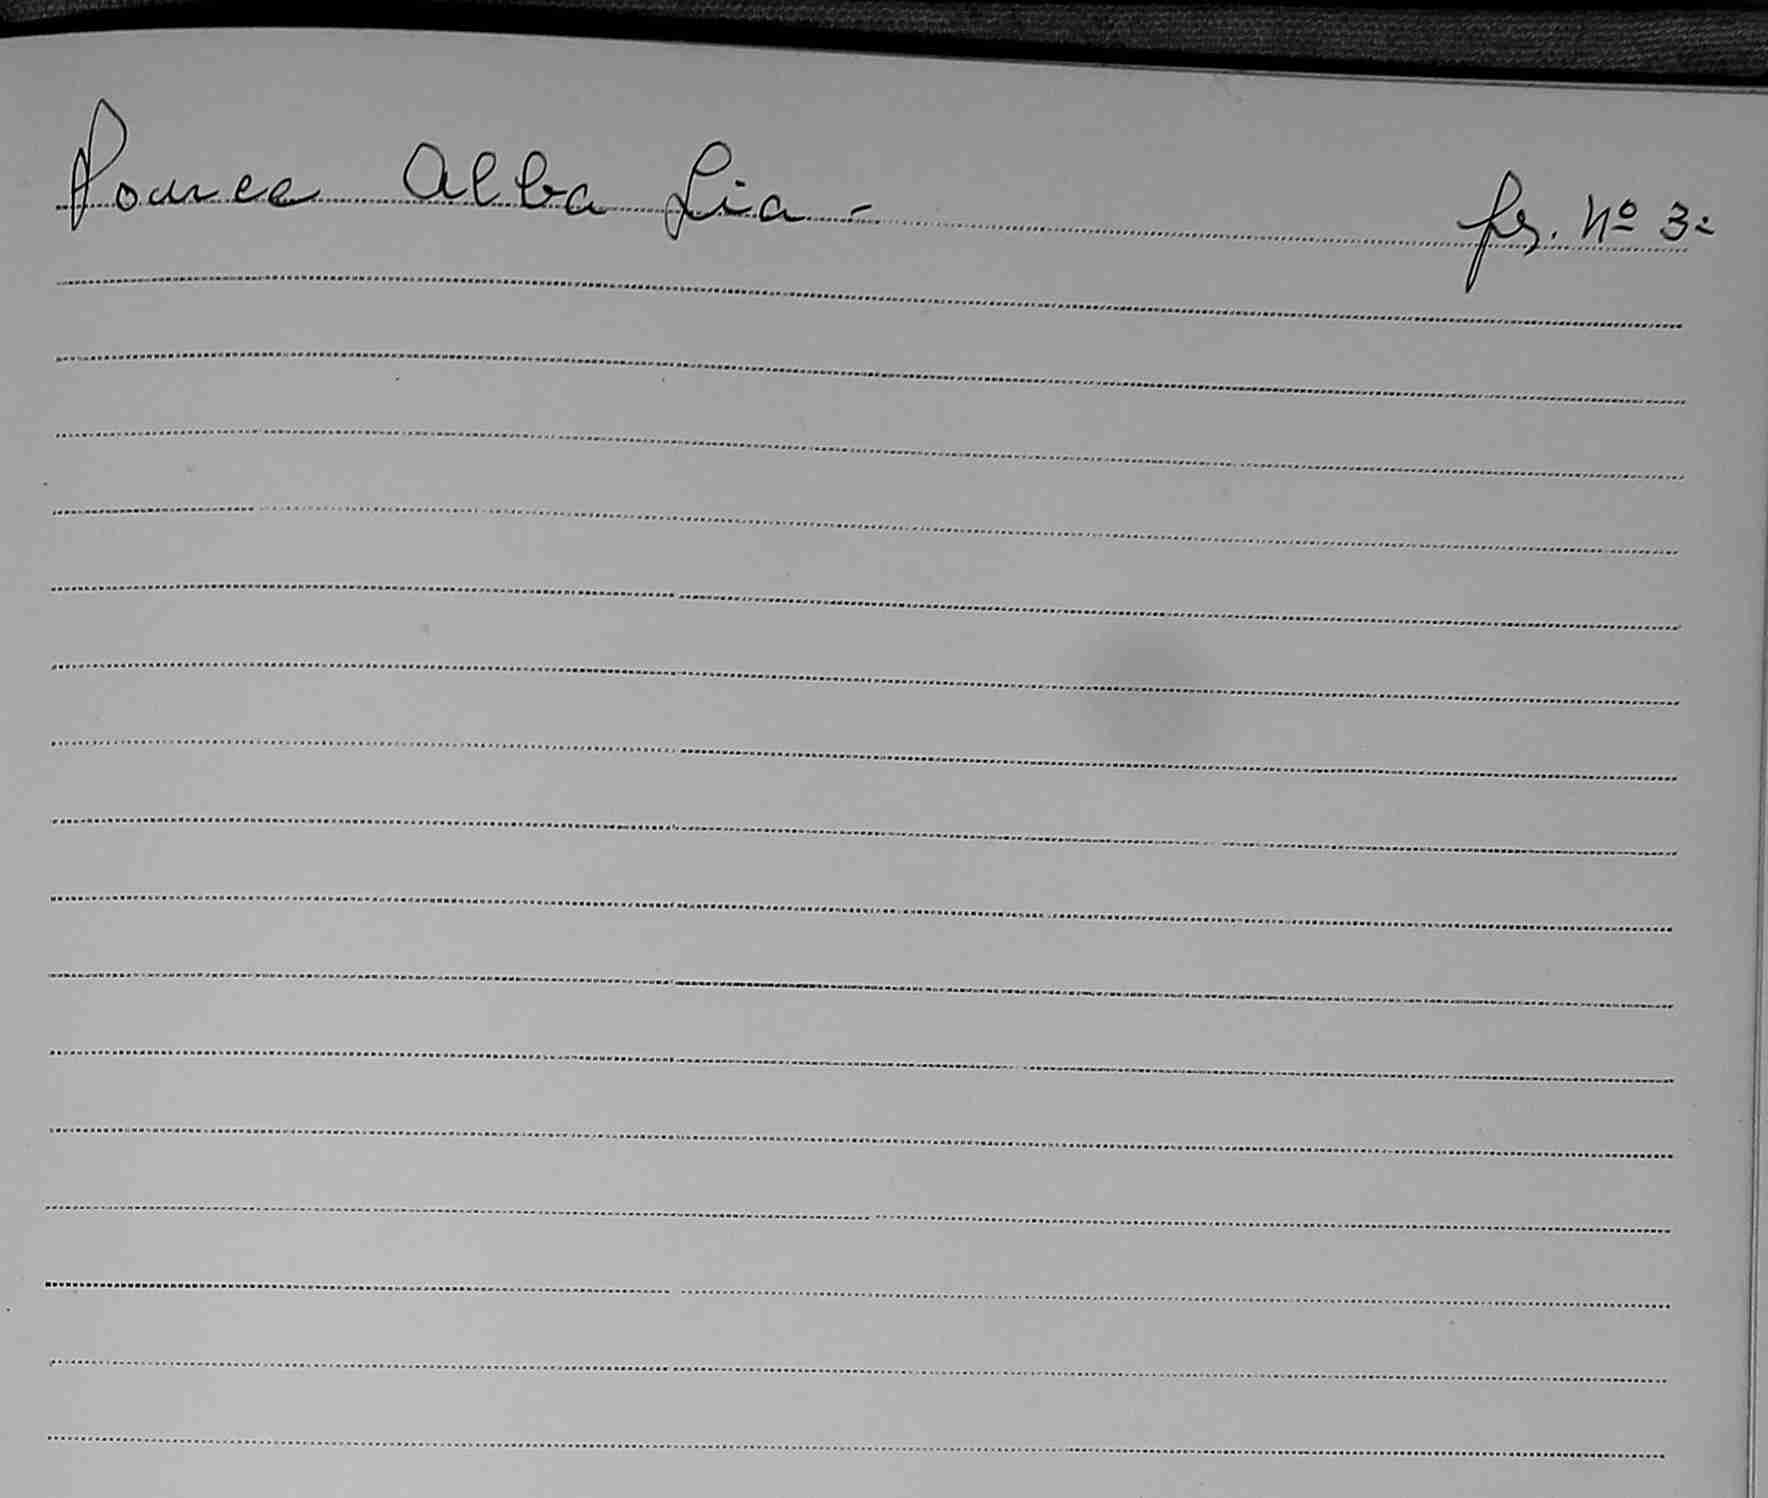 Ponce Alba Lia - fs. Nº 3-